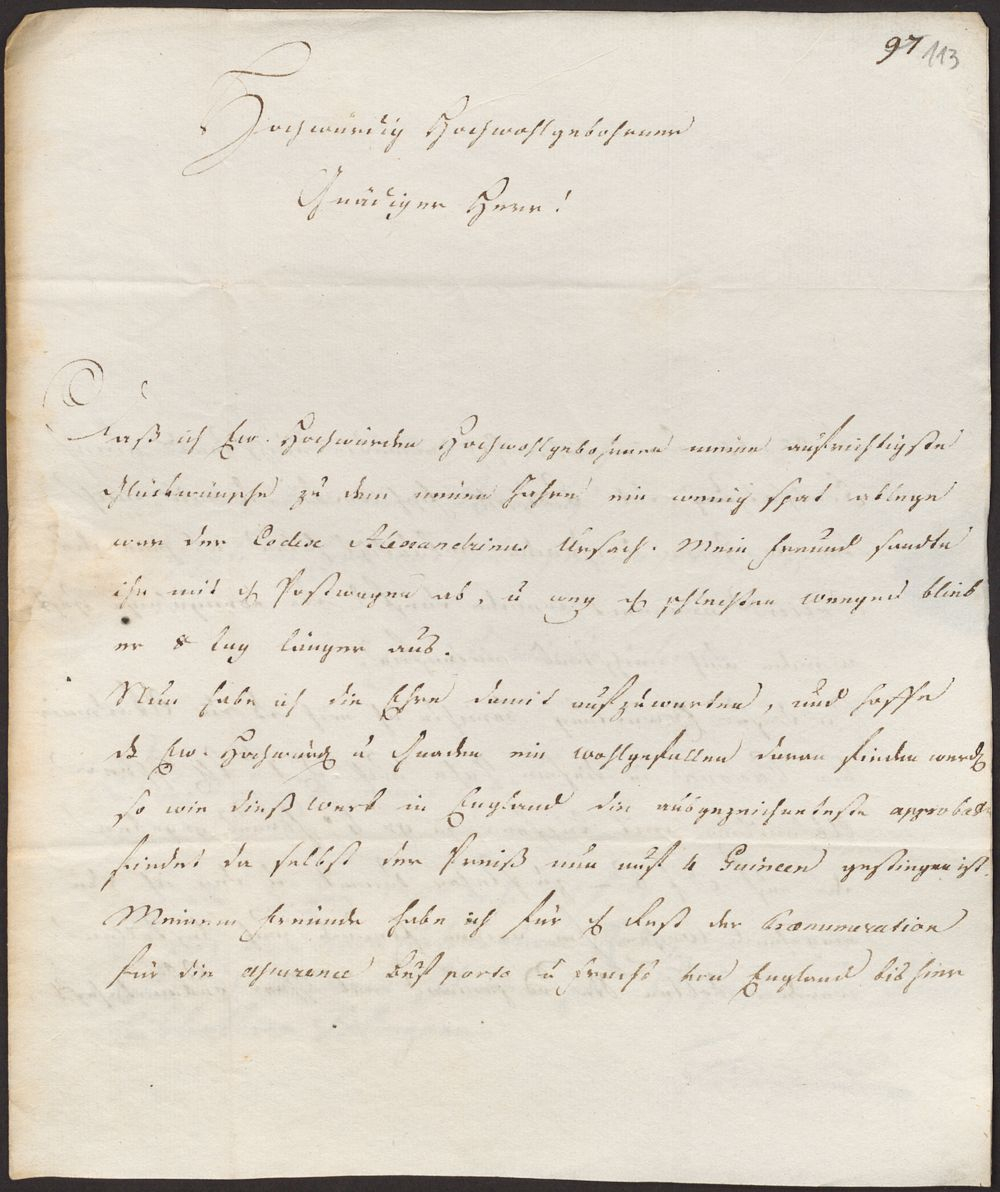 97 113
Hochwürdig Hochwohlgebohrner
Gnädiger Herr!
Daß ich Ew. Hochwürden Hochwohlgebohrnen meine aufrichtigste
Glückwünsche zu dem neuen Jahre ein wenig spat ablege
war der Codex Alexandrinus Ursach. Mein Freund sandte
ihn mit Postwagen ab, u weg schlechten weeges blieb
er 8 tag länger aus.
Nun habe ich die Ehre damit aufzuwarten, und hoffe
dß Ew. Hochwürd u Gnaden ein wohlgefallen daran finden werd
so wie dieß werk in England die ausgezeichneteste approbat
findet da selbst der Preiß nun auf 4 Guineen gestiegen ist.
Meinem Freunde habe ich für Rest der Prænumeration
für die assurence porto u Fracht von England bis hier